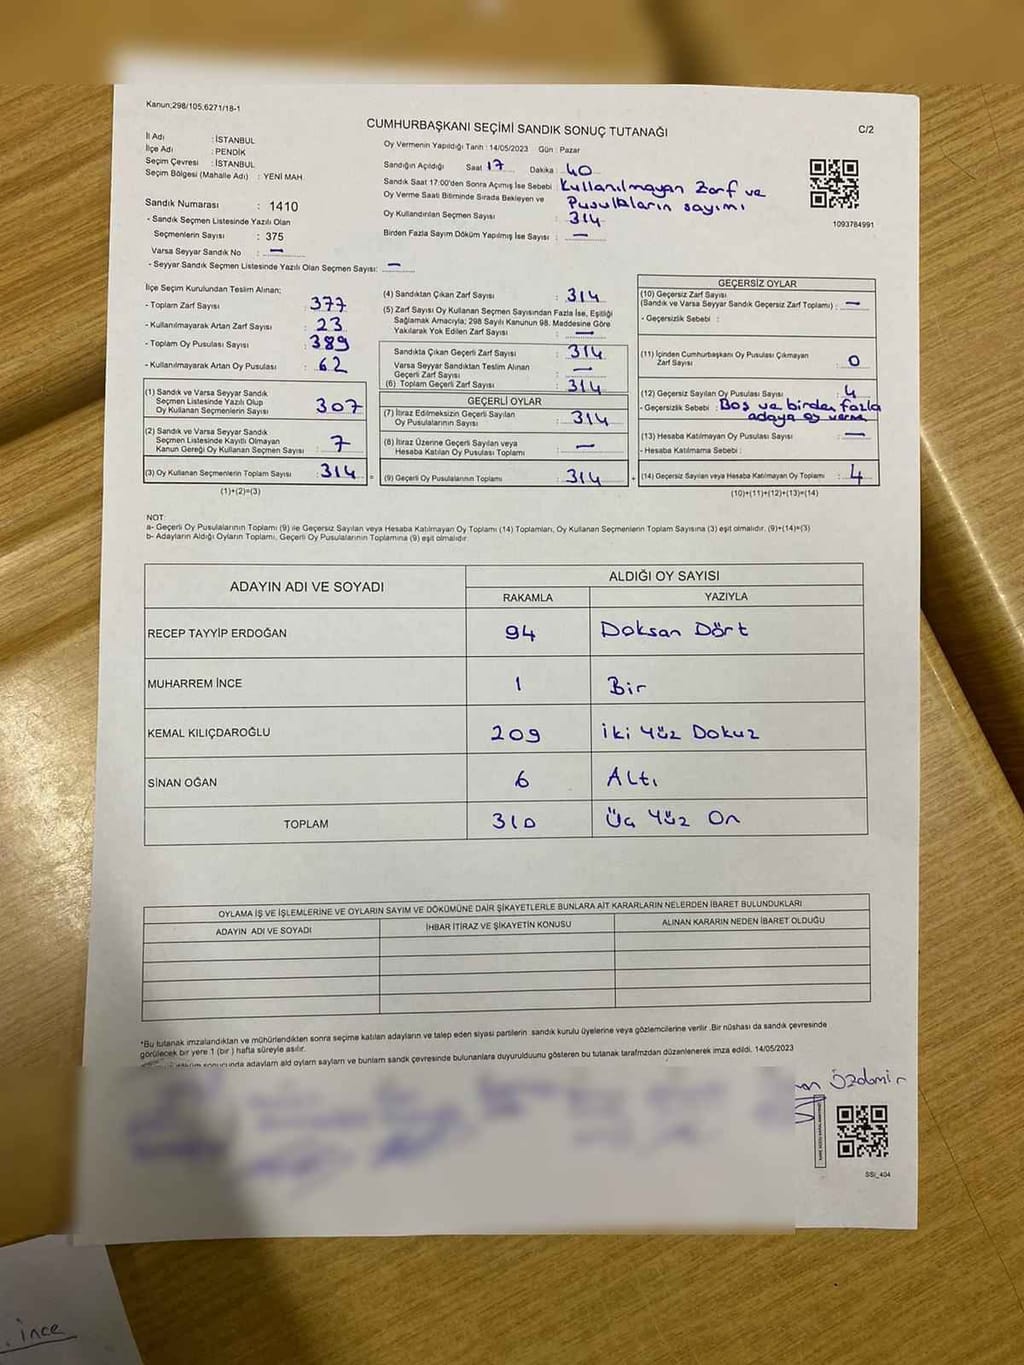 Kanun;298/105,6271/18-1
CUMHURBAŞKANI SEÇİMİ SANDIK SONUÇ TUTANAĞI
C/2
İl Adı : İSTANBUL
İlçe Adı : PENDİK
Seçim Çevresi : İSTANBUL
Seçim Bölgesi (Mahalle Adı) : YENİ MAH.
Oy Vermenin Yapıldığı Tarih : 14/05/2023 Gün : Pazar
Sandığın Açıldığı Saat 17 Dakika : 40
Sandık Saat 17:00'den Sonra Açımış İse Sebebi : Kullanılmayan Zarf ve
Pusulaların sayımı
Oy Verme Saati Bitiminde Sırada Bekleyen ve
Oy Kullandırılan Seçmen Sayısı : 314
Birden Fazla Sayım Döküm Yapılmış İse Sayısı : —
1093784991
Sandık Numarası : 1410
- Sandık Seçmen Listesinde Yazılı Olan
Seçmenlerin Sayısı : 375
Varsa Seyyar Sandık No : —
- Seyyar Sandık Seçmen Listesinde Yazılı Olan Seçmen Sayısı: —
İlçe Seçim Kurulundan Teslim Alınan;
- Toplam Zarf Sayısı : 377
- Kullanılmayarak Artan Zarf Sayısı : 23
- Toplam Oy Pusulası Sayısı : 389
- Kullanılmayarak Artan Oy Pusulası : 62
(1) Sandık ve Varsa Seyyar Sandık
Seçmen Listesinde Yazılı Olup
Oy Kullanan Seçmenlerin Sayısı : 307
(2) Sandık ve Varsa Seyyar Sandık
Seçmen Listesinde Kayıtlı Olmayan
Kanun Gereği Oy Kullanan Seçmen Sayısı : 7
(3) Oy Kullanan Seçmenlerin Toplam Sayısı : 314
(1)+(2)=(3)
(4) Sandıktan Çıkan Zarf Sayısı : 314
(5) Zarf Sayısı Oy Kullanan Seçmen Sayısından Fazla İse, Eşitliği
Sağlamak Amacıyla; 298 Sayılı Kanunun 98. Maddesine Göre
Yakılarak Yok Edilen Zarf Sayısı : —
Sandıkta Çıkan Geçerli Zarf Sayısı : 314
Varsa Seyyar Sandıktan Teslim Alınan
Geçerli Zarf Sayısı : —
(6) Toplam Geçerli Zarf Sayısı : 314
GEÇERLİ OYLAR
(7) İtiraz Edilmeksizin Geçerli Sayılan
Oy Pusulalarının Sayısı : 314
(8) İtiraz Üzerine Geçerli Sayılan veya
Hesaba Katılan Oy Pusulası Toplamı : —
= (9) Geçerli Oy Pusulalarının Toplamı : 314
GEÇERSİZ OYLAR
(10) Geçersiz Zarf Sayısı
(Sandık ve Varsa Seyyar Sandık Geçersiz Zarf Toplamı) : —
- Geçersizlik Sebebi :
(11) İçinden Cumhurbaşkanı Oy Pusulası Çıkmayan
Zarf Sayısı : 0
(12) Geçersiz Sayılan Oy Pusulası Sayısı : 4
- Geçersizlik Sebebi : Boş ve birden fazla
adaya oy verme
(13) Hesaba Katılmayan Oy Pusulası Sayısı : —
- Hesaba Katılmama Sebebi :
+ (14) Geçersiz Sayılan veya Hesaba Katılmayan Oy Toplamı : 4
(10)+(11)+(12)+(13)=(14)
NOT:
a- Geçerli Oy Pusulalarının Toplamı (9) ile Geçersiz Sayılan veya Hesaba Katılmayan Oy Toplamı (14) Toplamları, Oy Kullanan Seçmenlerin Toplam Sayısına (3) eşit olmalıdır. (9)+(14)=(3)
b- Adayların Aldığı Oyların Toplamı, Geçerli Oy Pusulalarının Toplamına (9) eşit olmalıdır.
ADAYIN ADI VE SOYADI ALDIĞI OY SAYISI
RAKAMLA YAZIYLA
RECEP TAYYİP ERDOĞAN 94 Doksan Dört
MUHARREM İNCE 1 Bir
KEMAL KILIÇDAROĞLU 209 İki Yüz Dokuz
SİNAN OĞAN 6 Altı
TOPLAM 310 Üç Yüz On
OYLAMA İŞ VE İŞLEMLERİNE VE OYLARIN SAYIM VE DÖKÜMÜNE DAİR ŞİKAYETLERLE BUNLARA AİT KARARLARIN NELERDEN İBARET BULUNDUKLARI
ADAYIN ADI VE SOYADI İHBAR İTİRAZ VE ŞİKAYETİN KONUSU ALINAN KARARIN NEDEN İBARET OLDUĞU
*Bu tutanak imzalandıktan ve mühürlendikten sonra seçime katılan adayların ve talep eden siyasi partilerin sandık kurulu üyelerine veya gözlemcilerine verilir. Bir nüshası da sandık çevresinde
görülecek bir yere 1 (bir) hafta süreyle asılır.
sonucunda adaylam ald oylam saylam ve bunlam sandk çevresinde bulunanlara duyurulduunu gösteren bu tutanak tarafmzdan düzenlenerek imza edildi. 14/05/2023
Özdemir
SSİ_404
İnce